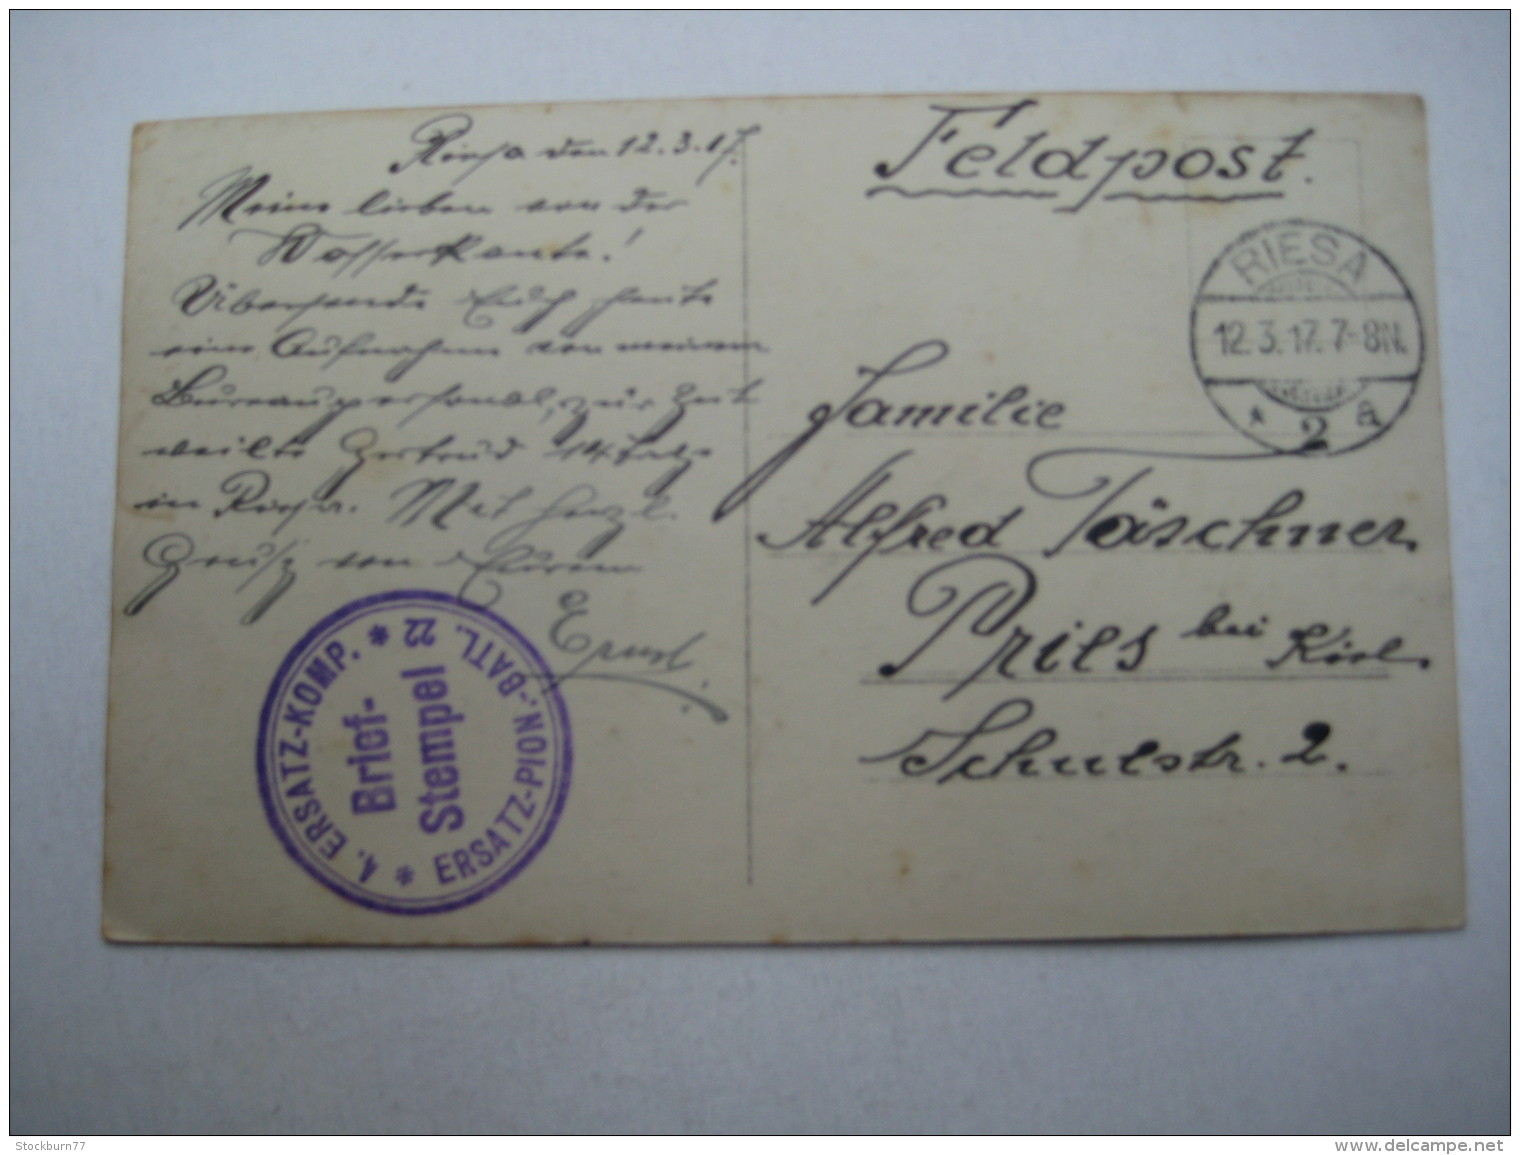 Riesa den 12.3.17.
Meine lieben von der
Wasserkante!
Übersende Euch heute
eine Aufnahme von meinem
Bureaupersonal, zur Zeit
weilte Gertrud 14 Tage
in Riesa. Mit herzl.
Gruß von Eurem
Ernst.
1. ERSATZ-KOMP. * ERSATZ-PION.-BATL. 22 *
Brief-
Stempel
Feldpost.
RIESA
12.3.17.7-8N.
* 2 a
Familie
Alfred Täschner
Pries bei Kiel
Schulstr. 2.
Stockburn77
www.delcampe.net